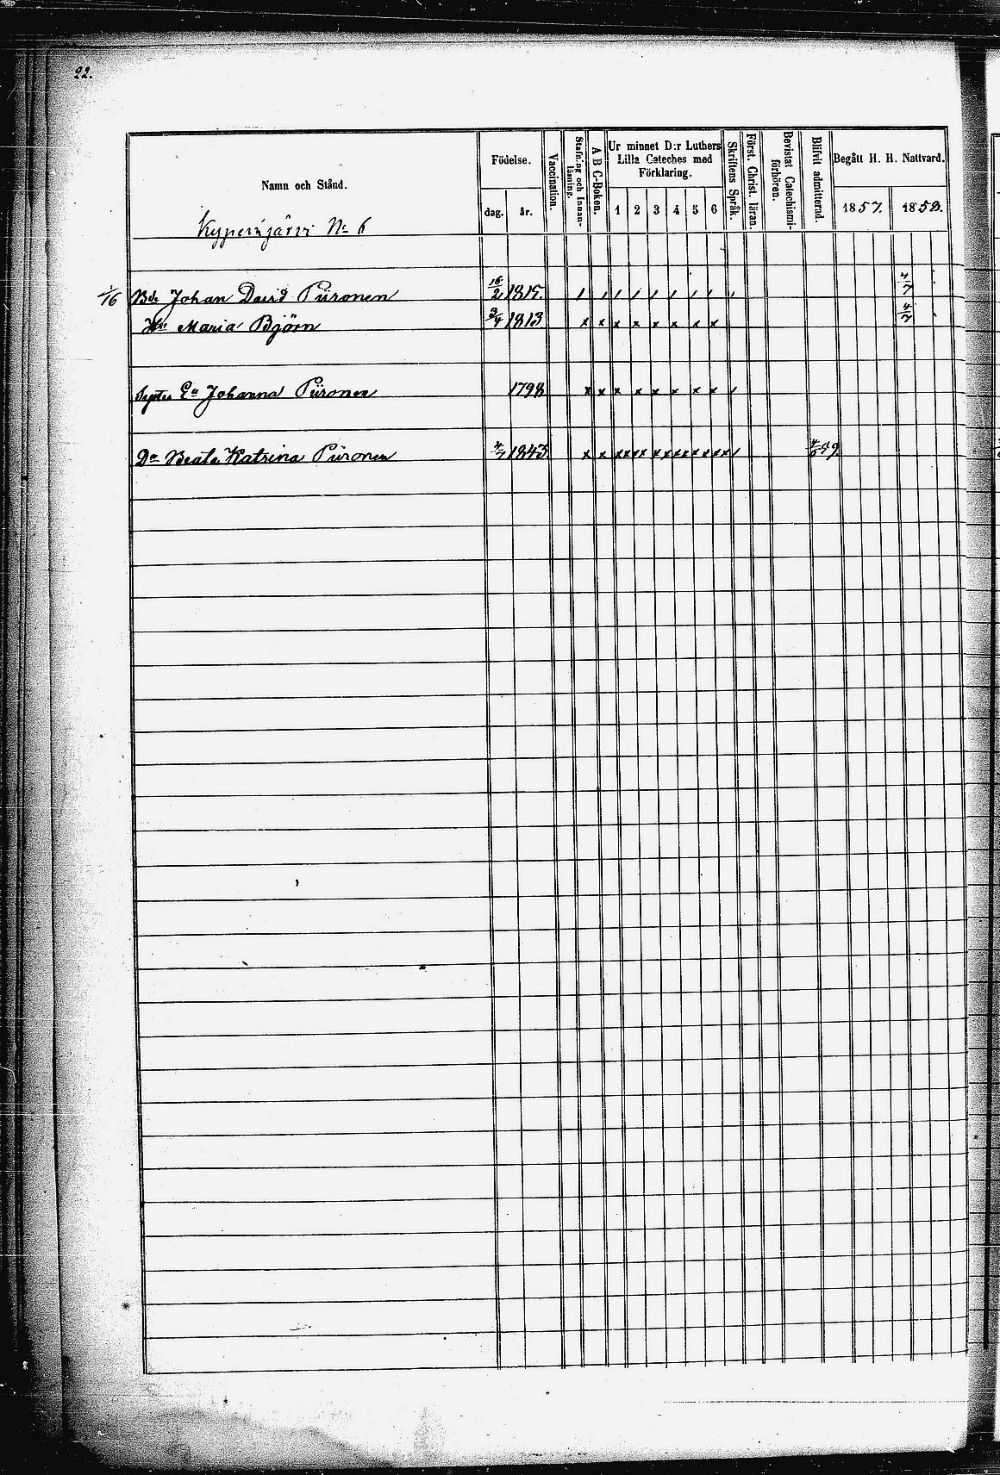 22.
Namn och Stånd.
Födelse.
dag. år.
Vaccination.
Stafning och Innan-läsning.
A B C-Boken.
Ur minnet D:r Luthers
Lilla Cateches med
Förklaring.
1 2 3 4 5 6
Skriftens Språk.
Först. Christ. läran.
Bevistat Catechismi-
förhören.
Blifvit admitterad.
Begått H. H. Nattvard.
1857. 1858.
Kyperinjärvi No 6
1/16 Bdr Johan David Püronen 16/2 1815. 4/7
Hu Maria Björn 3/4 1813 4/7
Enka Johanna Püronen 1798
Dr Beata Katrina Püronen 4/7 1843